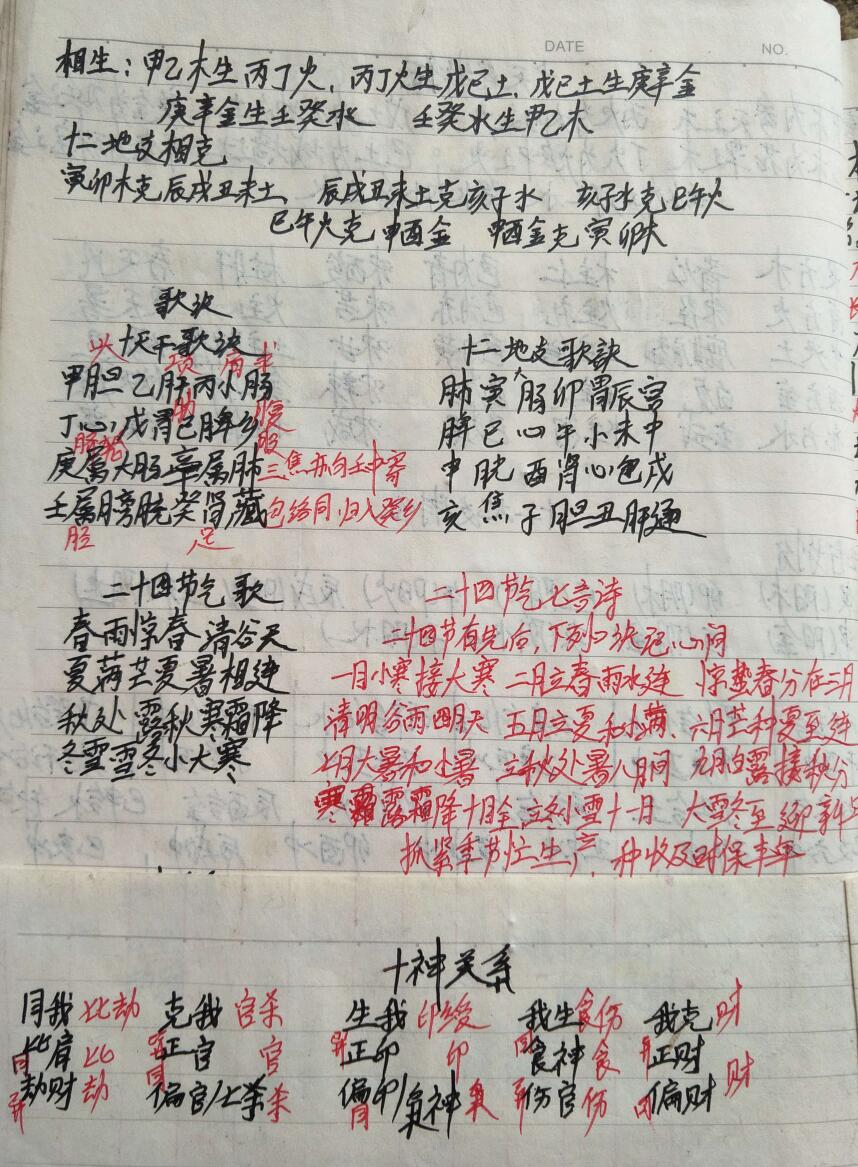 DATE NO.
相生：甲乙木生丙丁火，丙丁火生戊己土、戊己土生庚辛金
庚辛金生壬癸水 壬癸水生甲乙木
十二地支相克
寅卯木克辰戌丑未土、辰戌丑未土克亥子水 亥子水克巳午火
巳午火克申酉金 申酉金克寅卯木
歌诀
十天干歌诀
头 项 肩求
甲胆乙肝丙小肠
丁心戊胃己脾乡
胁 腹
庚属大肠辛属肺三焦亦向壬中寄
股
壬属膀胱癸肾藏包络同归入癸乡
胫 足
十二地支歌訣
肺寅大肠卯胃辰宫
脾巳心午小未中
申胱酉肾心包戌
亥焦子胆丑肝通
二十四节气歌
春雨惊春清谷天
夏满芒夏暑相连
秋处露秋寒霜降
冬雪雪冬小大寒
二十四节气七言诗
二十四节有先后，下列口诀记心间
一月小寒接大寒 二月立春雨水连 惊蛰春分在三月
清明谷雨四月天 五月立夏和小满、六月芒种夏至连
七月大暑和小暑 立秋处暑八月间 九月白露接秋分
寒露霜降十月全 立冬小雪十一月 大雪冬至迎新年
抓紧季节忙生产，种收及时保丰年
十神关系
同我 比劫 克我 官杀 生我 印绶 我生食伤 我克财
同 比肩 比 异 正官 官 异 正印 印 同 食神 食 异 正财 财
异 劫财 劫 同 偏官/七杀 杀 同 偏印/枭神 枭 异 伤官 伤 同 偏财